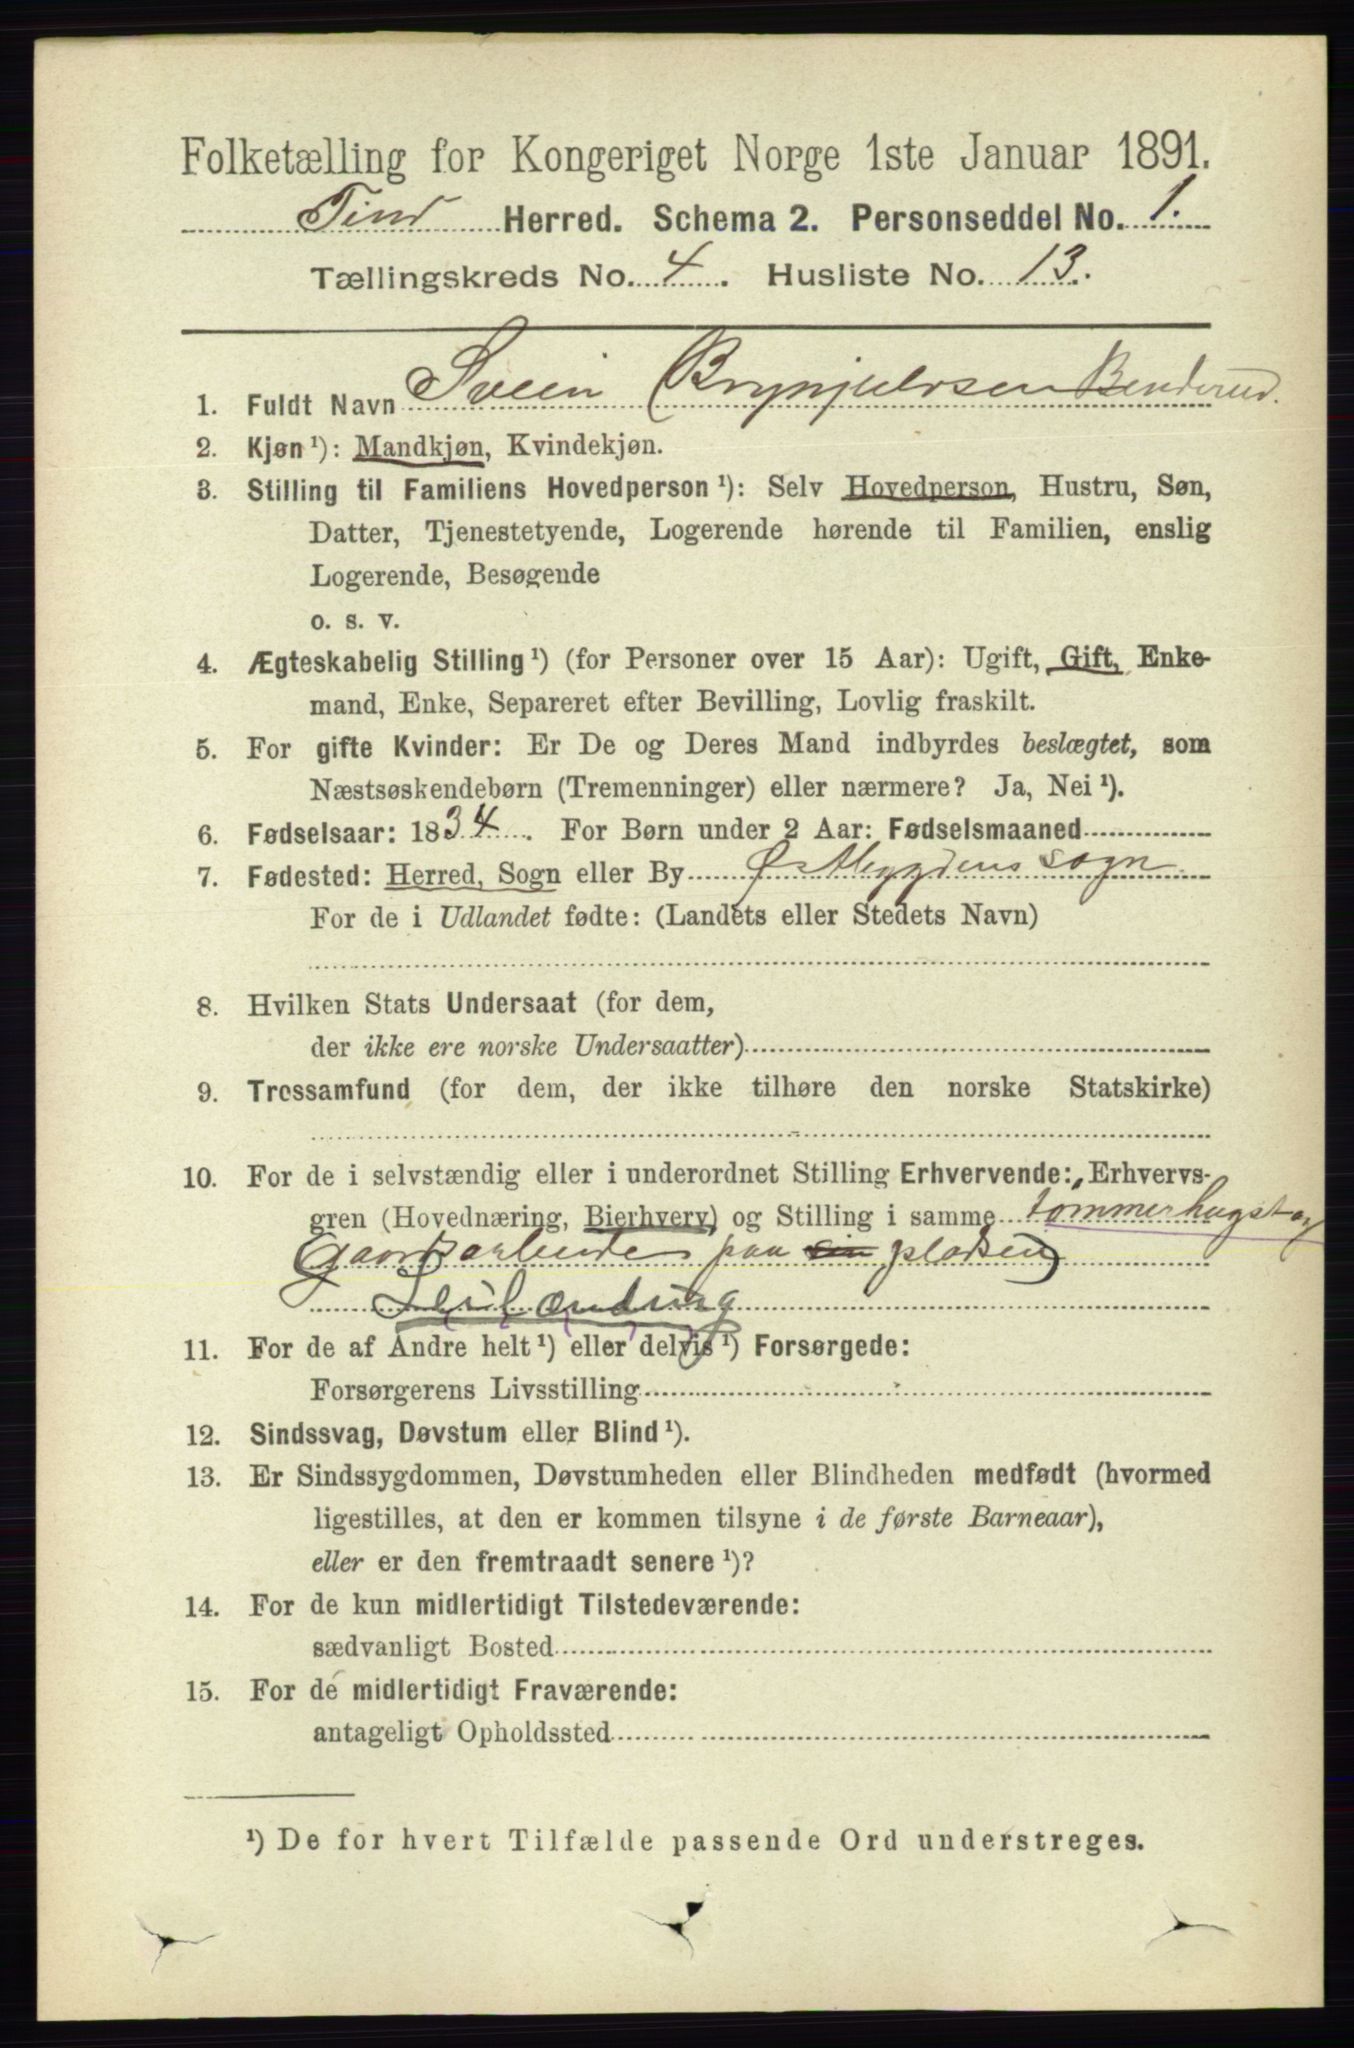 Folketælling for Kongeriget Norge 1ste Januar 1891.
Tind Herred. Schema 2. Personseddel No. 1.
Tællingskreds No. 4. Husliste No. 13.
1. Fuldt Navn Svein Brynjulvsen Benderud.
2. Kjøn ¹): Mandkjøn, Kvindekjøn.
3. Stilling til Familiens Hovedperson ¹): Selv Hovedperson, Hustru, Søn,
Datter, Tjenestetyende, Logerende hørende til Familien, enslig
Logerende, Besøgende
o. s. v.
4. Ægteskabelig Stilling ¹) (for Personer over 15 Aar): Ugift, Gift, Enke-
mand, Enke, Separeret efter Bevilling, Lovlig fraskilt.
5. For gifte Kvinder: Er De og Deres Mand indbyrdes beslægtet, som
Næstsøskendebørn (Tremenninger) eller nærmere? Ja, Nei ¹).
6. Fødselsaar: 1834. For Børn under 2 Aar: Fødselsmaaned
7. Fødested: Herred, Sogn eller By Østbygdens sogn.
For de i Udlandet fødte: (Landets eller Stedets Navn)
8. Hvilken Stats Undersaat (for dem,
der ikke ere norske Undersaatter)
9. Trossamfund (for dem, der ikke tilhøre den norske Statskirke)
10. For de i selvstændig eller i underordnet Stilling Erhvervende: Erhvervs-
gren (Hovednæring, Bierhverv) og Stilling i samme tømmerhugst og
(gaardsarbeide paa sin pladsen)
Leilænding
11. For de af Andre helt ¹) eller delvis ¹) Forsørgede:
Forsørgerens Livsstilling
12. Sindssvag, Døvstum eller Blind ¹).
13. Er Sindssygdommen, Døvstumheden eller Blindheden medfødt (hvormed
ligestilles, at den er kommen tilsyne i de første Barneaar),
eller er den fremtraadt senere ¹)?
14. For de kun midlertidigt Tilstedeværende:
sædvanligt Bosted
15. For de midlertidigt Fraværende:
antageligt Opholdssted
¹) De for hvert Tilfælde passende Ord understreges.